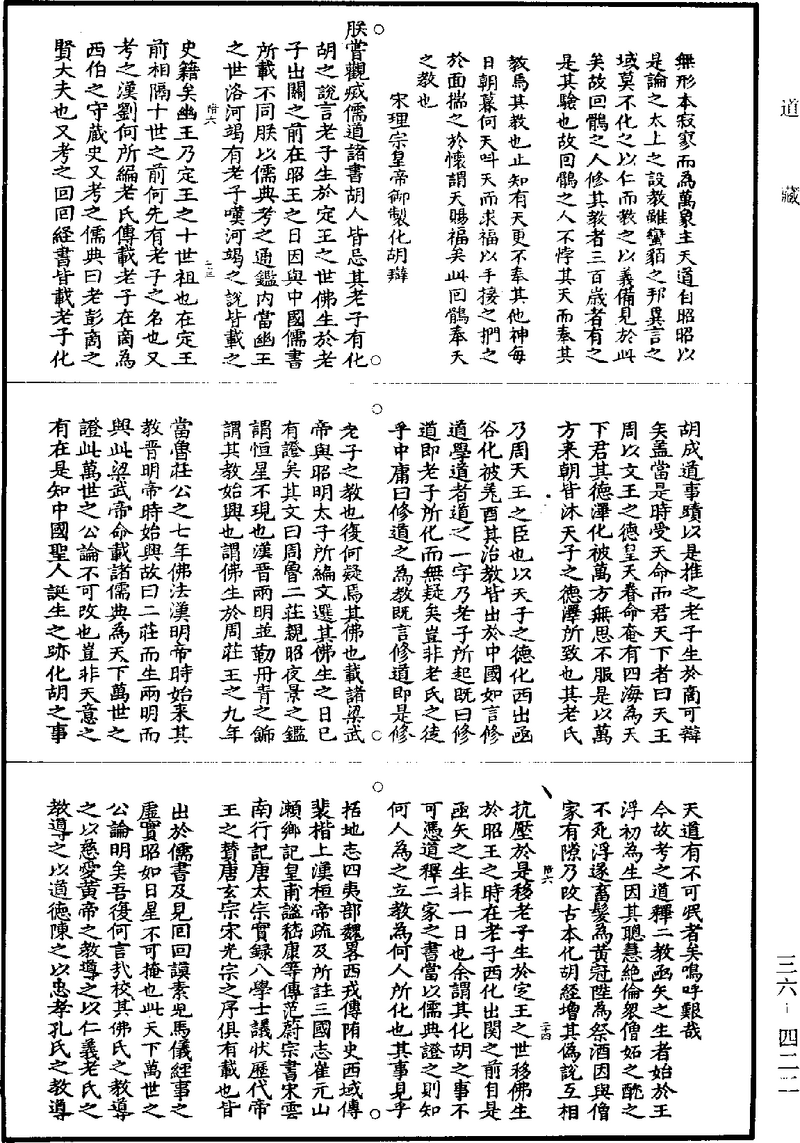 道藏
無形本寂寥而為萬象主天道自昭昭以
是論之太上之設教雖蠻貊之邦異言之
域莫不化之以仁而教之以義備見於此
矣故回鶻之人修其教者三百歲者有之
是其驗也故回鶻之人不悖其天而奉其
教焉其教也止知有天更不奉其他神每
日朝暮何天呌天而求福以手接之捫之
於面揣之於懷謂天賜福矣此回鶻奉天
之教也
宋理宗皇帝御製化胡辯
朕嘗觀疧儒道諸書胡人皆忌其老子有化
胡之說言老子生於定王之世佛生於老
子出關之前在昭王之日因與中國儒書
所載不同朕以儒典考之通鑑内當幽王
之世洛河竭有老子嘆河竭之說皆載之
史籍矣幽王乃定王之十世祖也在定王
前相隔十世之前何先有老子之名也又
考之漢劉向所編老氏傳載老子在商為
西伯之守藏史又考之儒典曰老彭商之
賢大夫也又考之回回經書皆載老子化
胡成道事蹟以是推之老子生於商可辯
矣盖當是時受天命而君天下者曰天王
周以文王之德皇天眷命奄有四海為天
下君其德澤化被萬方無思不服是以萬
方来朝皆沐天子之德澤所致也其老氏
乃周天王之臣也以天子之德化西出函
谷化被羌酉其治教皆出於中國如言修
道學道者道之一字乃老子所起既曰修
道即老子所化而無疑矣豈非老氏之徒
乎中庸曰修道之為教既言修道即是修
老子之教也復何疑焉其佛也載諸梁武
帝與昭明太子所編文選其佛生之日已
有證矣其文曰周魯二莊親昭夜景之鑑
謂恒星不現也漢晋兩明並勒丹青之飾
謂其教始興也謂佛生於周莊王之九年
當魯莊公之七年佛法漢明帝時始来其
教晋明帝時始興故曰二莊而生兩明而
興此梁武帝命載諸儒典為天下萬世之
證此萬世之公論不可改也豈非天意之
有在是知中國聖人誕生之跡化胡之事
天道有不可泯者矣嗚呼艱哉
今故考之道釋二教函矢之生者始於王
浮初為生因其聰慧絕倫衆僧妬之酖之
不死浮遂畜髮為黃冠陞為祭酒因與僧
家有隙乃改古本化胡經增其偽說互相
抗壓於是移老子生於定王之世移佛生
於昭王之時在老子西化出関之前自是
函矢之生非一日也余謂其化胡之事不
可憑道釋二家之書當以儒典證之則知
何人為之立教為何人所化也其事見乎
括地志四夷部魏畧西戎傳隋史西域傳
裴楷上漢桓帝疏及所註三國志崔元山
瀨鄉記皇甫謐嵇康等傳范蔚宗書宋雲
南行記唐太宗實録八學士議狀歷代帝
王之贊唐玄宗宋光宗之序俱有載也皆
出於儒書及見回回謨素皃馬儀經事之
虛實昭如日星不可掩也此天下萬世之
公論明矣吾復何言㢤校其佛氏之教導
之以慈愛黃帝之教導之以仁義老氏之
教導之以道德陳之以忠孝孔氏之教導
三六–四二二